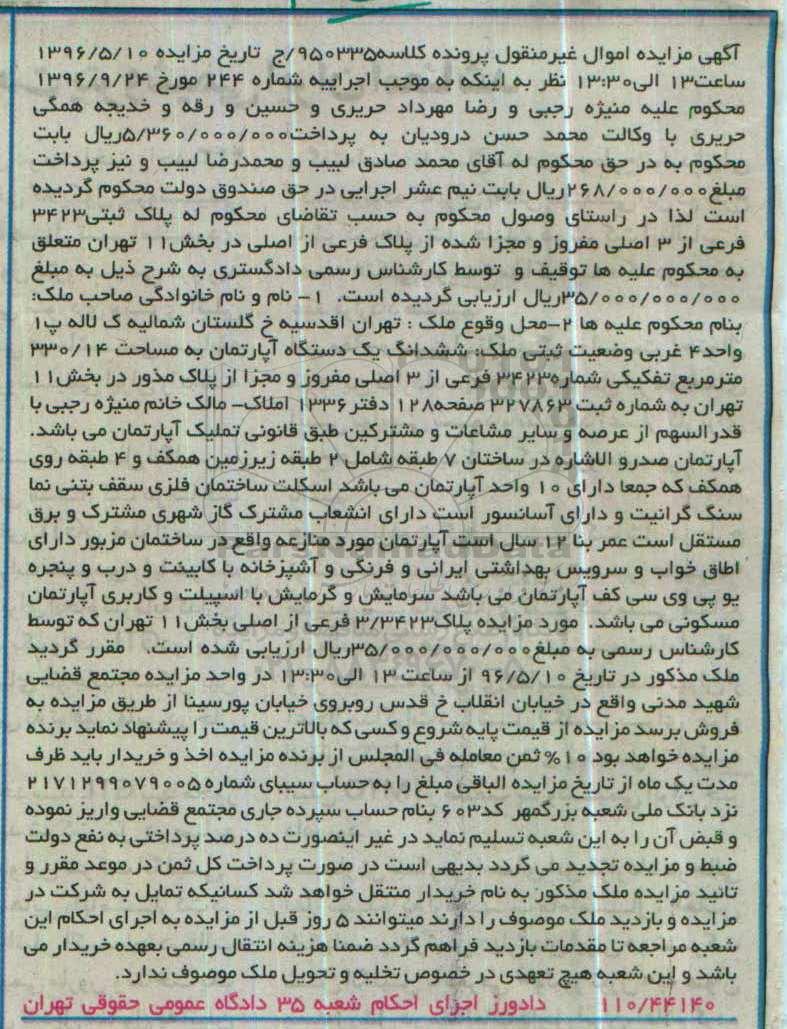 آگهی مزایده اموال غیرمنقول پرونده کلاسه۹۵۰۳۳۵/ج تاریخ مزایده ۱۳۹۶/۵/۱۰
ساعت۱۳ الی۱۳:۳۰ نظر به اینکه به موجب اجراییه شماره ۲۴۴ مورخ ۱۳۹۶/۹/۲۴
محکوم علیه منیژه رجبی و رضا مهرداد حریری و حسین و رقه و خدیجه همگی
حریری با وکالت محمد حسن درودیان به پرداخت۵/۳۶۰/۰۰۰/۰۰۰ریال بابت
محکوم به در حق محکوم له آقای محمد صادق لبیب و محمدرضا لبیب و نیز پرداخت
مبلغ۲۶۸/۰۰۰/۰۰۰ریال بابت نیم عشر اجرایی در حق صندوق دولت محکوم گردیده
است لذا در راستای وصول محکوم به حسب تقاضای محکوم له پلاک ثبتی۳۴۲۳
فرعی از ۳ اصلی مفروز و مجزا شده از پلاک فرعی از اصلی در بخش۱۱ تهران متعلق
به محکوم علیه ها توقیف و توسط کارشناس رسمی دادگستری به شرح ذیل به مبلغ
۳۵/۰۰۰/۰۰۰/۰۰۰ریال ارزیابی گردیده است. ۱- نام و نام خانوادگی صاحب ملک:
بنام محکوم علیه ها ۲-محل وقوع ملک : تهران اقدسیه خ گلستان شمالیه ک لاله پ۱
واحد۴ غربی وضعیت ثبتی ملک: ششدانگ یک دستگاه آپارتمان به مساحت ۳۳۰/۱۴
مترمربع تفکیکی شماره۳۴۲۳ فرعی از ۳ اصلی مفروز و مجزا از پلاک مذور در بخش۱۱
تهران به شماره ثبت ۳۲۷۸۶۳ صفحه۱۲۸ دفتر۱۳۳۶ املاک- مالک خانم منیژه رجبی با
قدرالسهم از عرصه و سایر مشاعات و مشترکین طبق قانونی تملیک آپارتمان می باشد.
آپارتمان صدرو الاشاره در ساختان ۷ طبقه شامل ۲ طبقه زیرزمین همکف و ۴ طبقه روی
همکف که جمعا دارای ۱۰ واحد آپارتمان می باشد اسکلت ساختمان فلزی سقف بتنی نما
سنگ گرانیت و دارای آسانسور است دارای انشعاب مشترک گاز شهری مشترک و برق
مستقل است عمر بنا ۱۲ سال است آپارتمان مورد منازعه واقع در ساختمان مزبور دارای
اطاق خواب و سرویس بهداشتی ایرانی و فرنگی و آشپزخانه با کابینت و درب و پنجره
یو پی وی سی کف آپارتمان می باشد سرمایش و گرمایش با اسپیلت و کاربری آپارتمان
مسکونی می باشد. مورد مزایده پلاک۳/۳۴۲۳ فرعی از اصلی بخش۱۱ تهران که توسط
کارشناس رسمی به مبلغ۳۵/۰۰۰/۰۰۰/۰۰۰ریال ارزیابی شده است. مقرر گردید
ملک مذکور در تاریخ ۹۶/۵/۱۰ از ساعت ۱۳ الی۱۳:۳۰ در واحد مزایده مجتمع قضایی
شهید مدنی واقع در خیابان انقلاب خ قدس روبروی خیابان پورسینا از طریق مزایده به
فروش برسد مزایده از قیمت پایه شروع و کسی که بالاترین قیمت را پیشنهاد نماید برنده
مزایده خواهد بود ۱۰% ثمن معامله فی المجلس از برنده مزایده اخذ و خریدار باید ظرف
مدت یک ماه از تاریخ مزایده الباقی مبلغ را به حساب سیبای شماره ۲۱۷۱۲۹۹۰۷۹۰۰۵
نزد بانک ملی شعبه بزرگمهر کد۶۰۳ بنام حساب سپرده جاری مجتمع قضایی واریز نموده
و قبض آن را به این شعبه تسلیم نماید در غیر اینصورت ده درصد پرداختی به نفع دولت
ضبط و مزایده تجدید می گردد بدیهی است در صورت پرداخت کل ثمن در موعد مقرر و
تائید مزایده ملک مذکور به نام خریدار منتقل خواهد شد کسانیکه تمایل به شرکت در
مزایده و بازدید ملک موصوف را دارند میتوانند ۵ روز قبل از مزایده به اجرای احکام این
شعبه مراجعه تا مقدمات بازدید فراهم گردد ضمنا هزینه انتقال رسمی بعهده خریدار می
باشد و این شعبه هیچ تعهدی در خصوص تخلیه و تحویل ملک موصوف ندارد.
۱۱۰/۴۴۱۴۰ دادورز اجرای احکام شعبه ۳۵ دادگاه عمومی حقوقی تهران